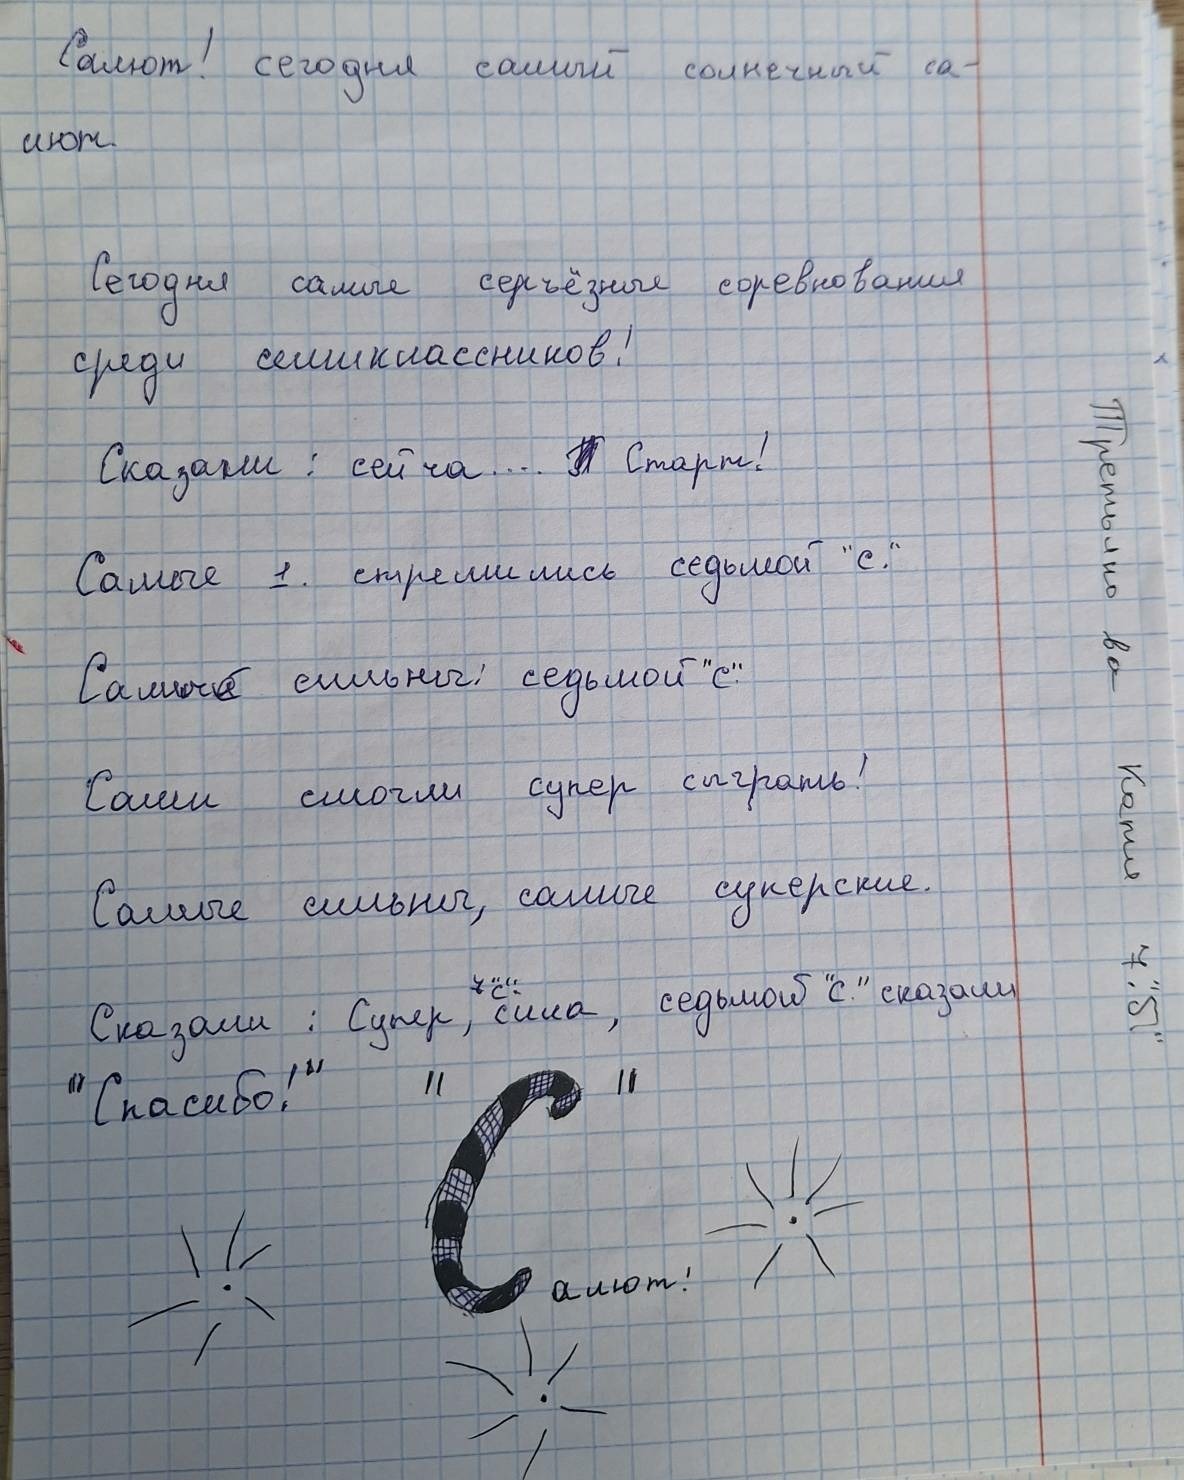 Салют! сегодня самый солнечный са-
лют.
Сегодня самые серьёзные соревнования
среди семиклассников!
Сказали : сейча.... Старт!
Самые 1. стремились седьмой "С."
Самые сильны! седьмой "С".
Сами смогли супер сыграть!
Самые сильны, самые суперские.
7 "С".
Сказали : Супер, сила, седьмой "С." сказали
"Спасибо!"
"С"
алют!
Третьяко ва Катя 7."Б"